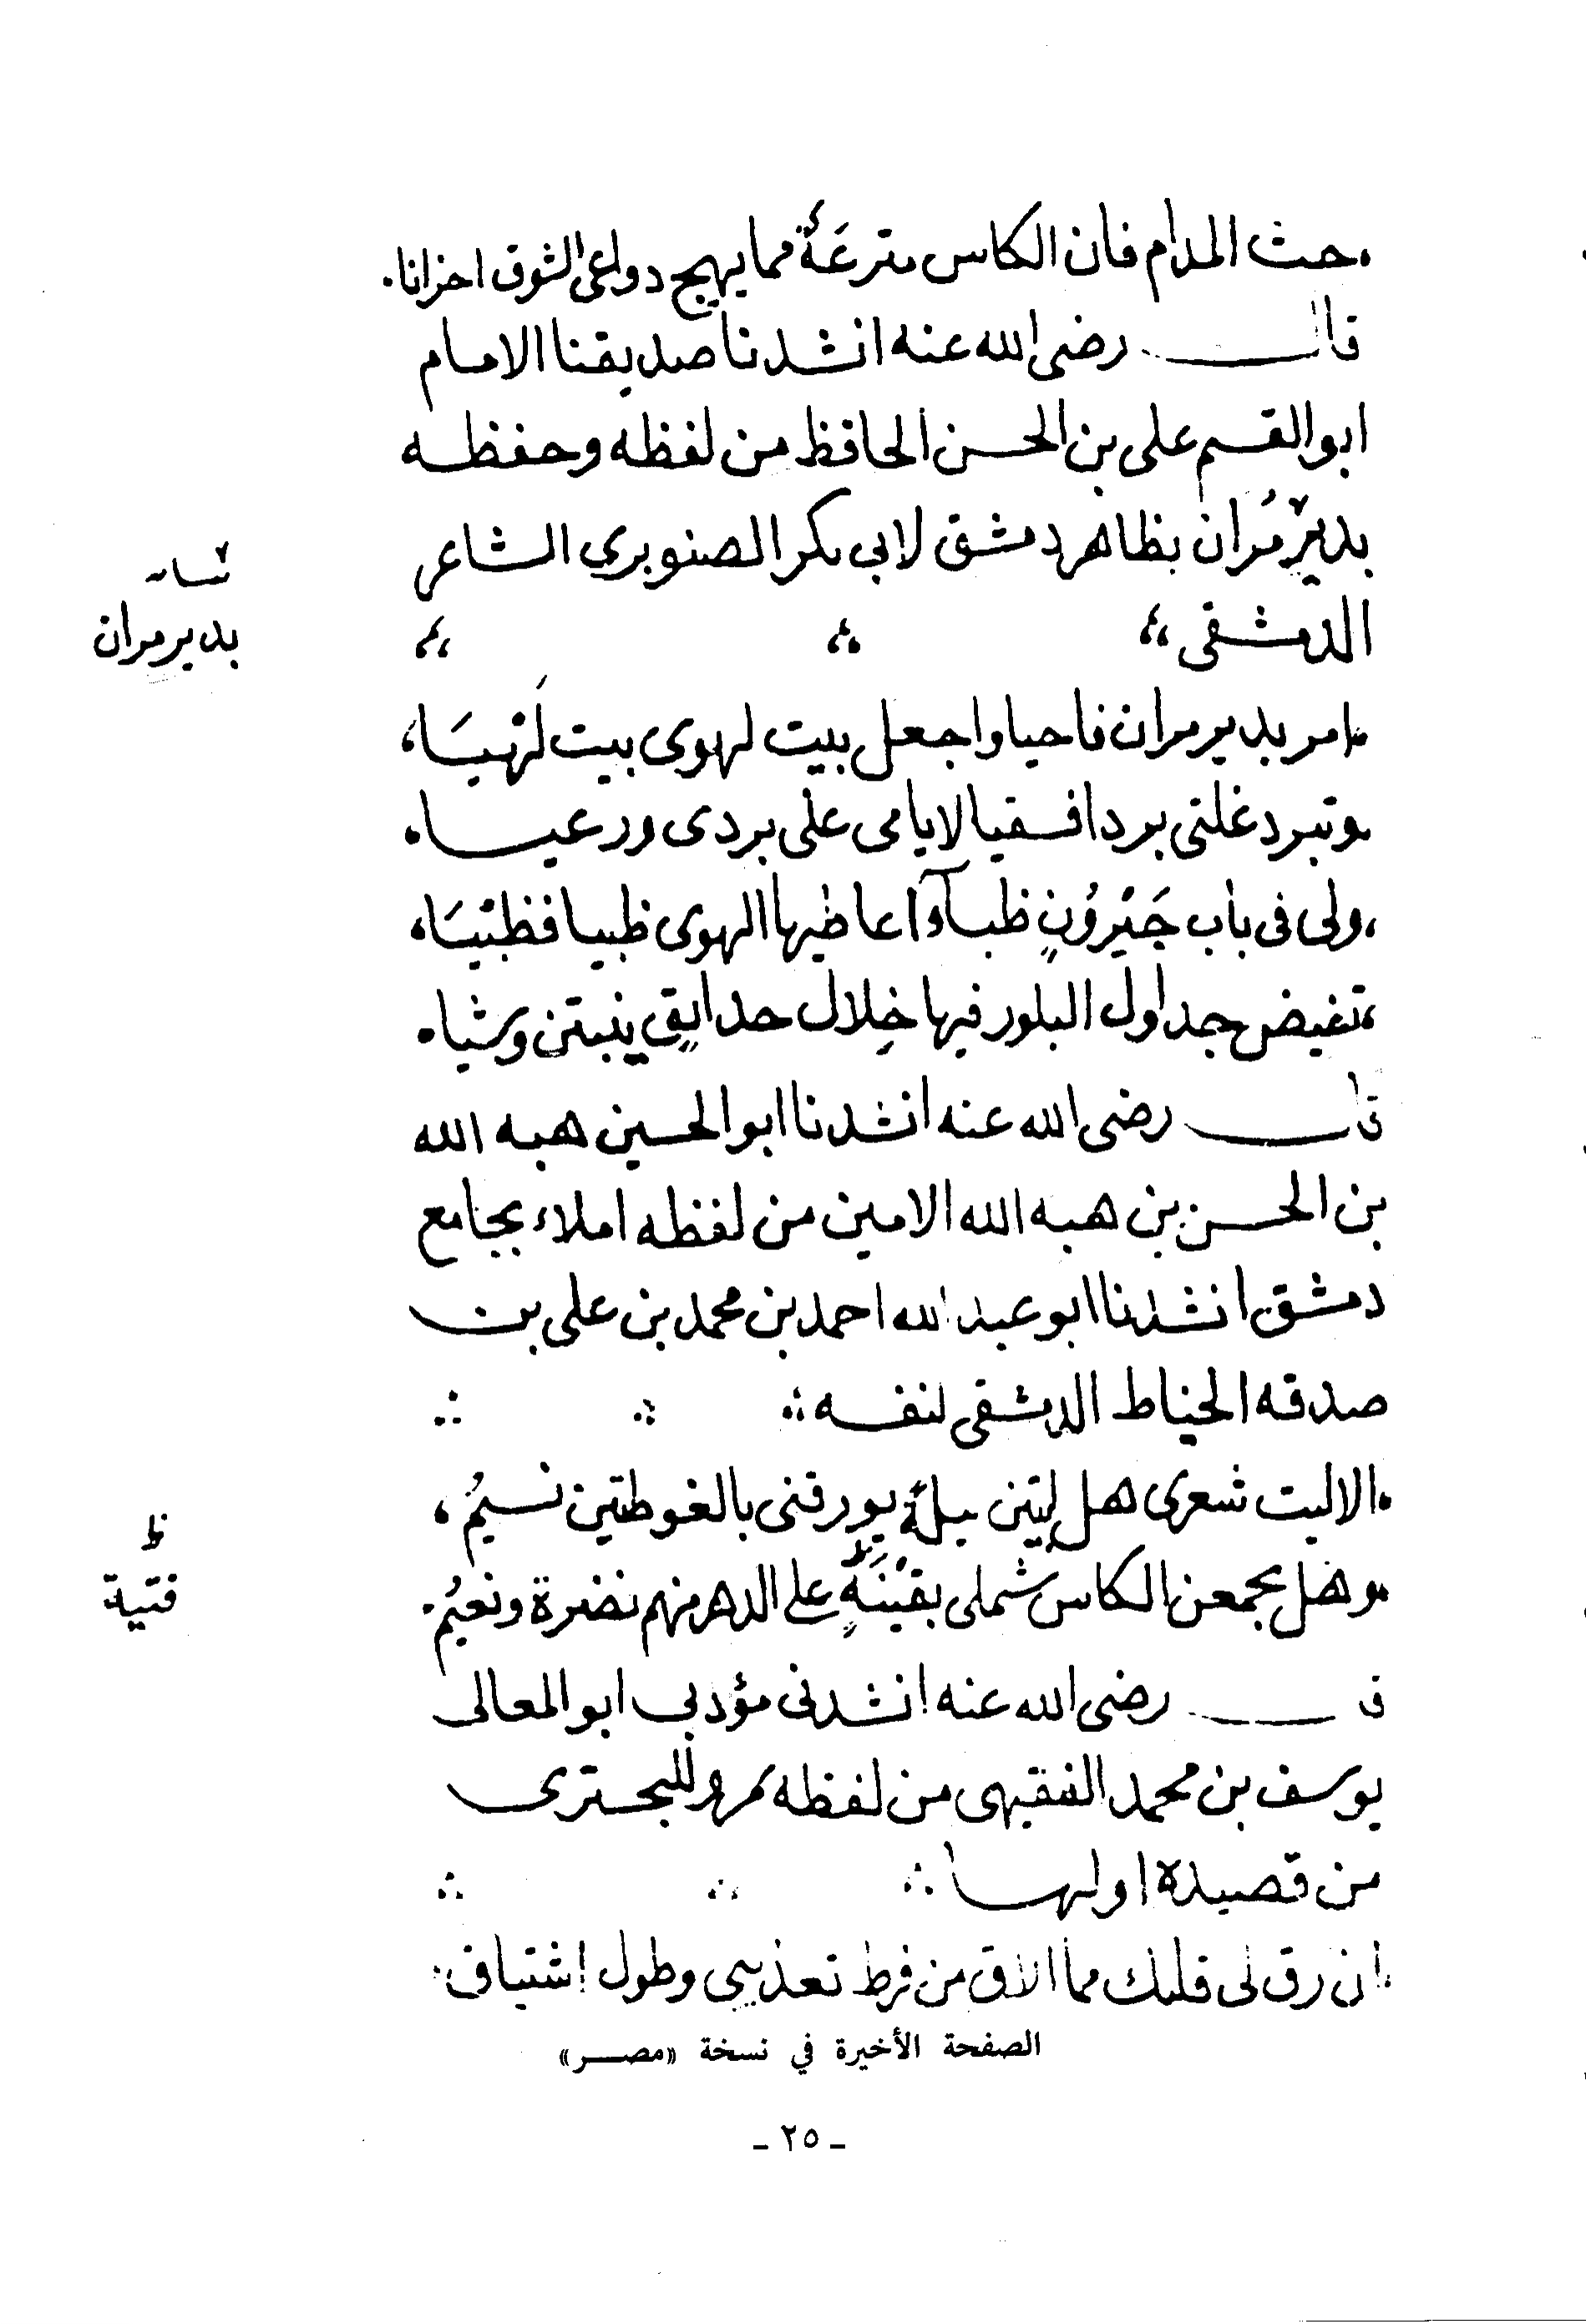 حث المدام فان الكاس مترعَة مما يهيج دواعى الشوق احزانا
قال رضى الله عنه انشدنا صديقنا الامام
ابو القسم على بن الحسن الحافظ من لفظه وحفظه
بديْر مُران بظاهر دمشق لابى بكر الصنوبري الشاعر
الدمشقى
بدير مران
امر بدير مران فاحيا واجعل بيت لهوى بيت لَهْيَا
وتبرد غلتى بردا فسقيا لايامى على بردى ورعيا
ولى فى باب جَيْرُونٍ ظبآء اعاطيها الهوى ظبيا فظبْيَا
تفيض جداول البلور فيها خِلال حدايقٍ ينبتن وشيا
قال رضى الله عنه انشدنا ابو الحسين هبه الله
بن الحسن بن هبه الله الامين من لفظه املاء بجامع
دمشق انشدنا ابو عبد الله احمد بن محمد بن على بن
صدقه الخياط الدمشقى لنفسه
الا ليت شعرى هل ابيتن ليلة يورقنى بالغوطتين نسيمُ
وهل يجمعن الكاس شملى بقيْنَةٍ على الدهر منهم نضرة ونعيمُ
ظ
فتية
قال رضى الله عنه انشدنى مؤدبى ابو المعالى
يوسف بن محمد الفقيهى من لفظه بمرو للبحترى
من قصيدة اولها
ان رق لى قلبك مما الاق من فرط تعذيبى وطول اشتياق
الصفحة الأخيرة في نسخة «مصر»
ـ ٢٥ ـ